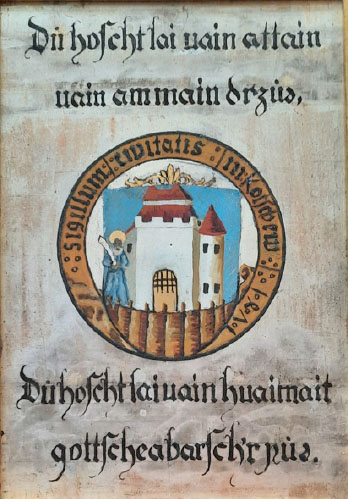 Dů hoſcht lai uain attain
uain ammain drzüə,
Sigillum : civitatis :
Dů hoſcht lai uain huaimait
gottſcheabarſch'r püə.